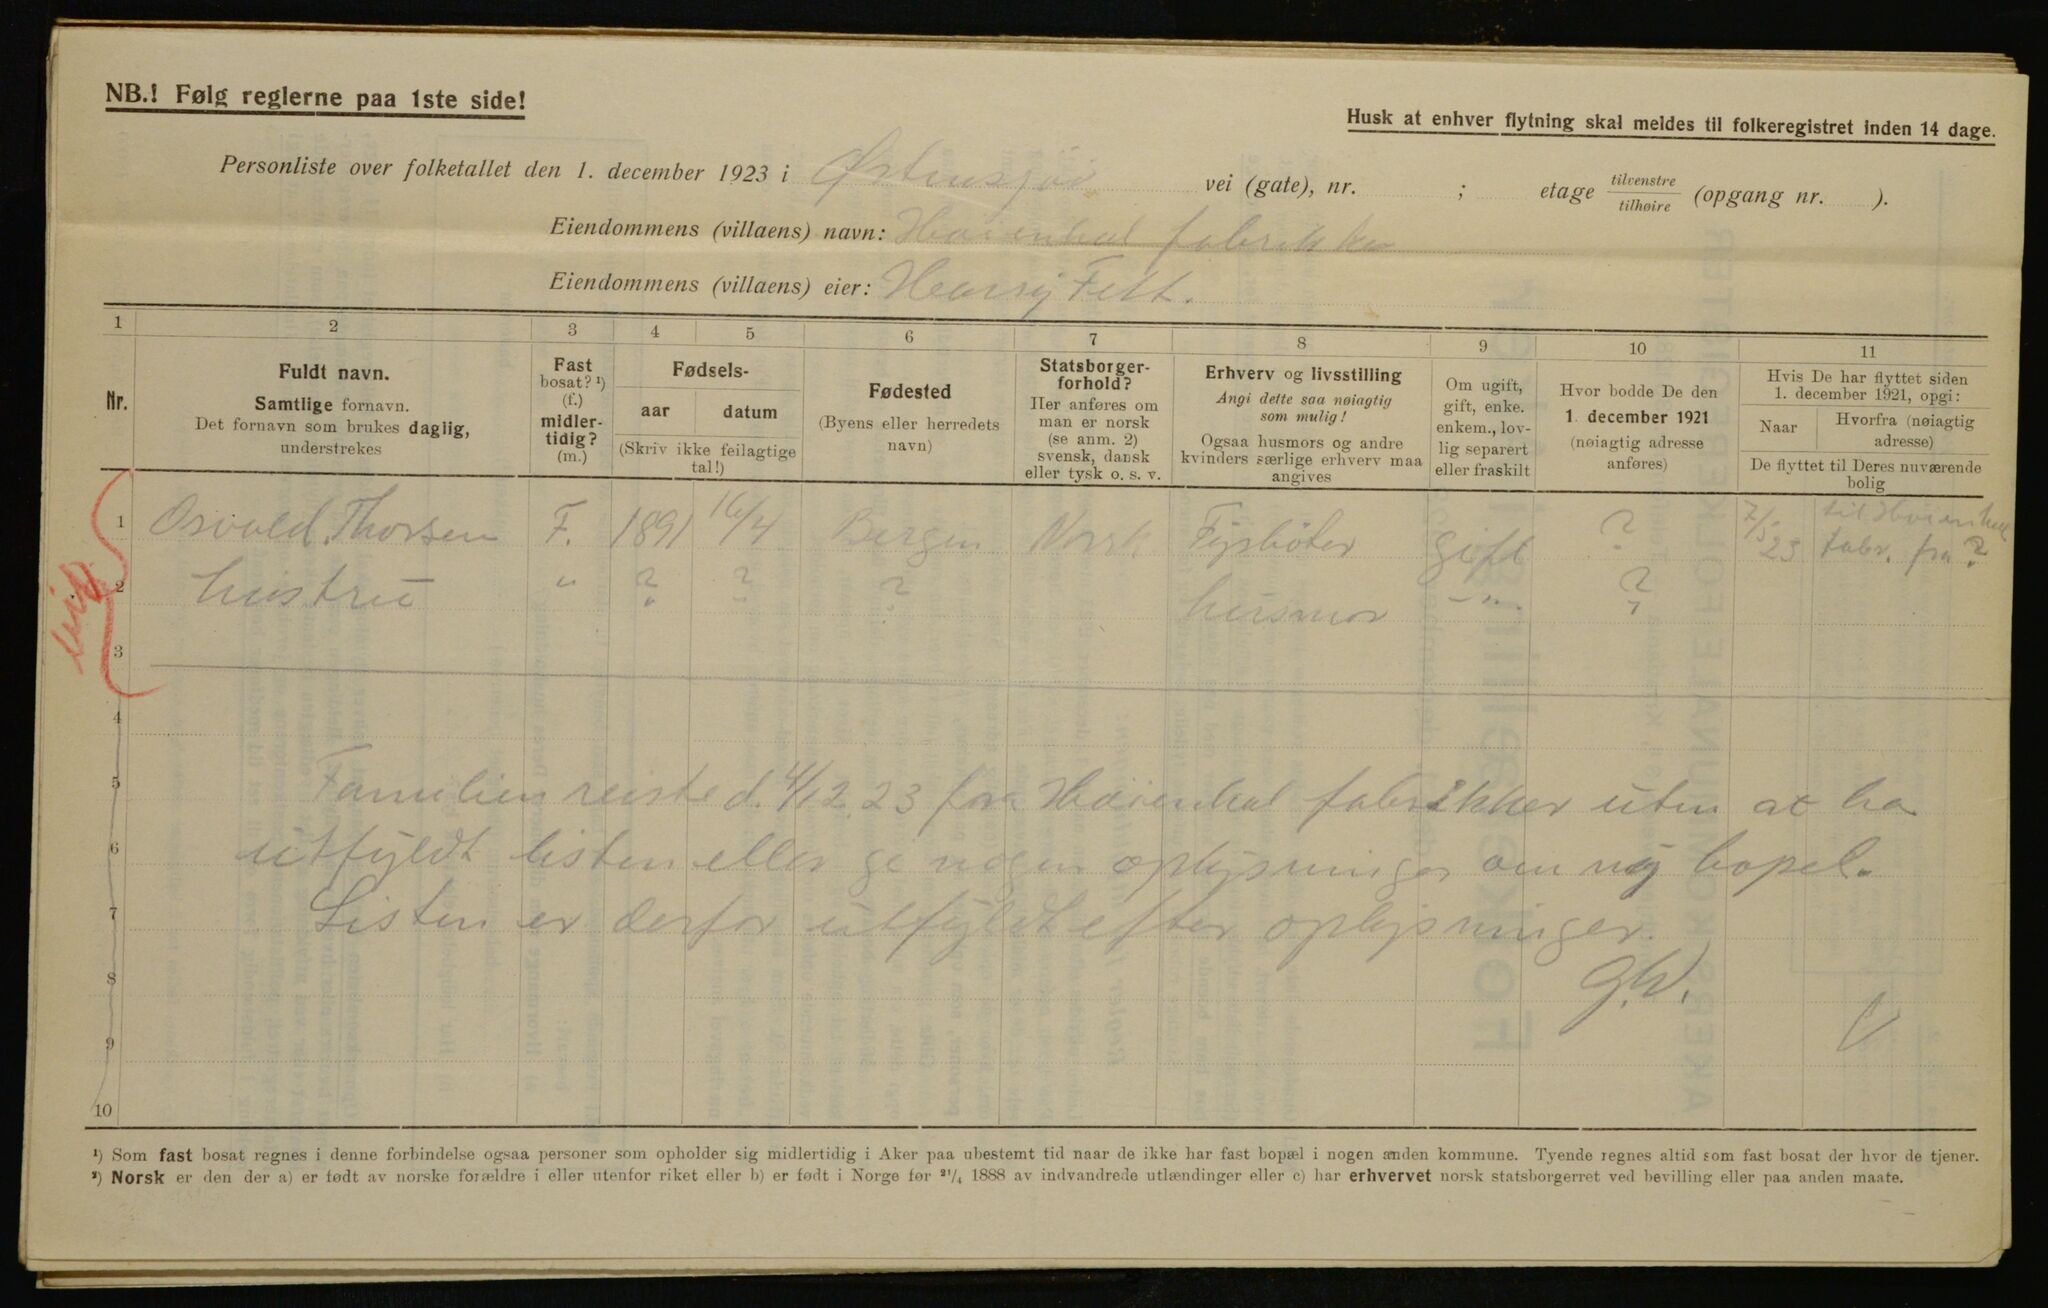 NB.! Følg reglerne paa 1ste side!
Husk at enhver flytning skal meldes til folkeregistret inden 14 dage.
Personliste over folketallet den 1. december 1923 i Østensjøi vei (gate), nr. ; etage tilvenstre tilhøire (opgang nr. ).
Eiendommens (villaens) navn: Høienhal fabrikker
Eiendommens (villaens) eier: Harry Fett.
1 2 3 4 5 6 7 8 9 10 11
Nr.
Fuldt navn.
Samtlige fornavn.
Det fornavn som brukes daglig,
understrekes
Fast
bosat? ¹)
(f.)
midler-
tidig?
(m.)
Fødsels-
aar datum
(Skriv ikke feilagtige
tal!)
Fødested
(Byens eller herredets
navn)
Statsborger-
forhold?
Her anføres om
man er norsk
(se anm. 2)
svensk, dansk
eller tysk o. s. v.
Erhverv og livsstilling
Angi dette saa nøiagtig
som mulig!
Ogsaa husmors og andre
kvinders særlige erhverv maa
angives
Om ugift,
gift, enke.
enkem., lov-
lig separert
eller fraskilt
Hvor bodde De den
1. december 1921
(nøiagtig adresse
anføres)
Hvis De har flyttet siden
1. december 1921, opgi:
Naar
Hvorfra (nøiagtig
adresse)
De flyttet til Deres nuværende
bolig
1 Osvald Thorsen F. 1891 16/4 Bergen Norsk Fyrbøter gift ? 7/5 23 til Høienhal
fabr. fra ?
2 hustru " ? ? ? husmor -"- ?
3
4
5 Familien reiste d. 4/12 23 fra Høienhal fabrikker uten at ha
6 utfyldt listen eller gi nogen oplysninger om ny bopel.
7 Listen er derfor utfyldt efter oplysninger.
8 G.W.
9
10
¹) Som fast bosat regnes i denne forbindelse ogsaa personer som opholder sig midlertidig i Aker paa ubestemt tid naar de ikke har fast bopæl i nogen anden kommune. Tyende regnes altid som fast bosat der hvor de tjener.
²) Norsk er den der a) er født av norske forældre i eller utenfor riket eller b) er født i Norge før ²¹/₄ 1888 av indvandrede utlændinger eller c) har erhvervet norsk statsborgerret ved bevilling eller paa anden maate.